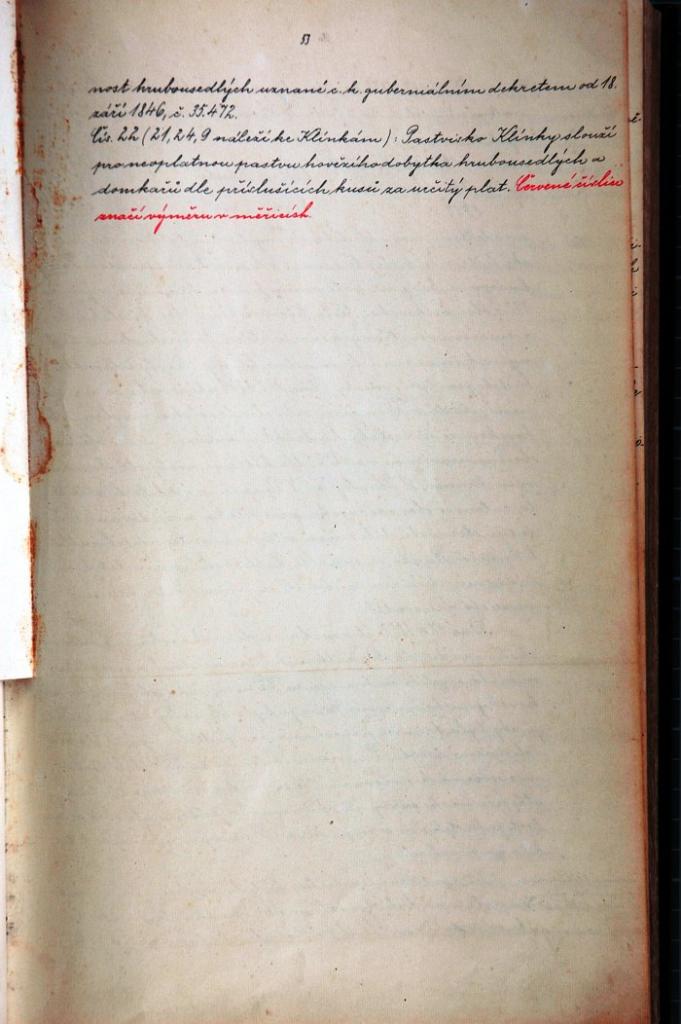 53
nost hrubousedlých uznané c. k. guberniálním dekretem od 18.
září 1846, č. 35.472.
Čís. 22 (21, 24, 9 náleží ke Klínkám): Pastvisko Klínky slouží
pro neoplatnou pastvu hovězího dobytka hrubousedlých a
domkařů dle příslušících kusů za určitý plat. Červené číslice
značí výměru v měřicích.